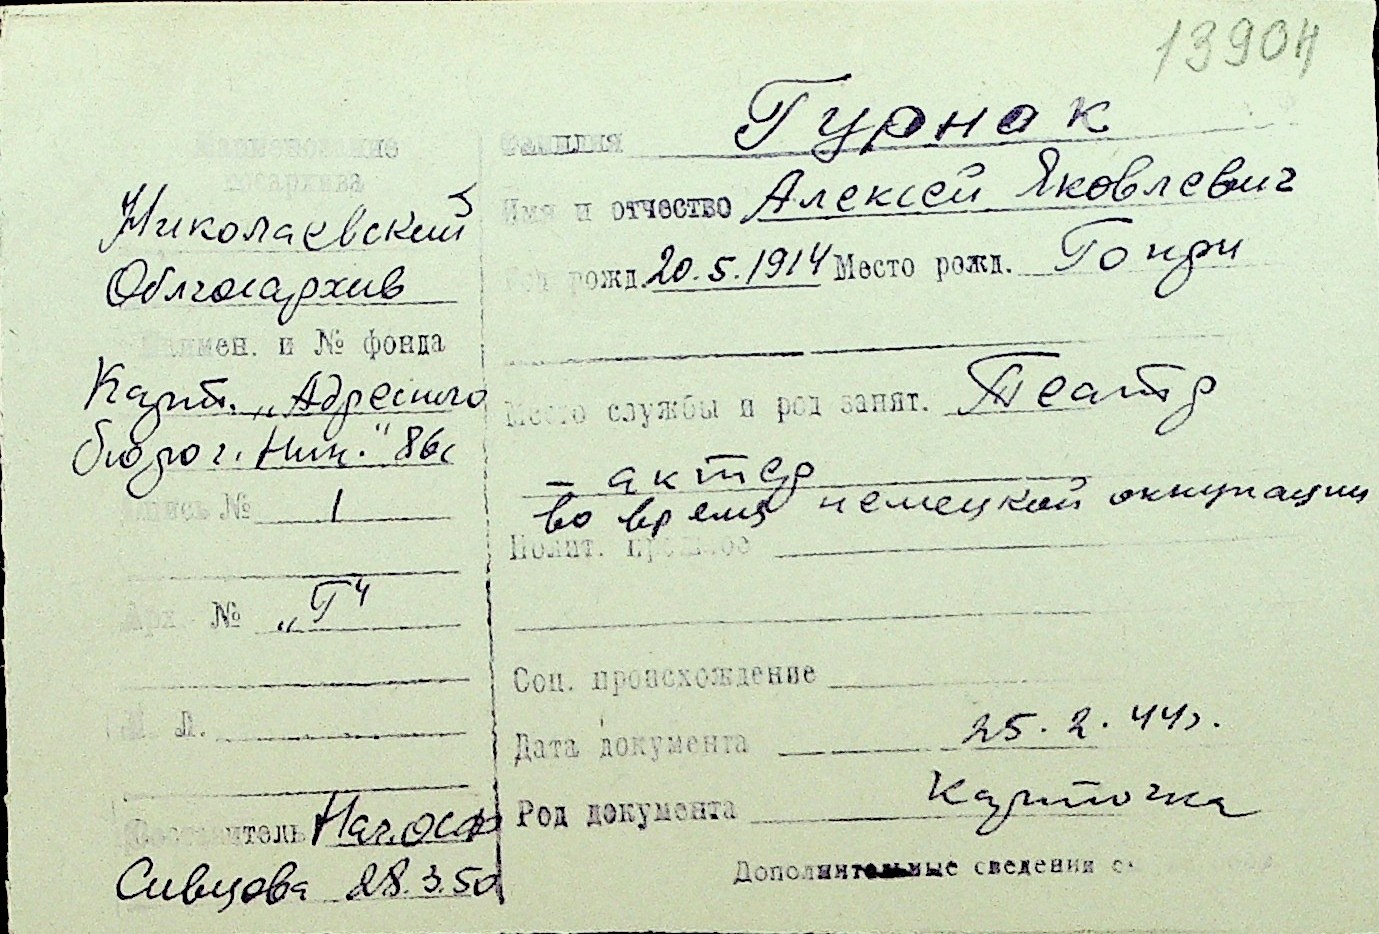 13904
Наименование
госархива
Николаевский
Облгосархив
Наимен. и № фонда
Карт. „Адресного
бюро г. Ник." 86с
Опись № 1
Арх. № „Г"
Л.
Составитель Нач. ОСФ
Сивцова 28.3.50
Фамилия Гурнак
Имя и отчество Алексей Яковлевич
Год рожд. 20.5.1914 Место рожд. Гонри
Место службы и род занят. Театр
– актер
во время немецкой оккупации
Полит. прошлое
Соц. происхождение
Дата документа 25.2.44г.
Род документа Карточка
Дополнительные сведения